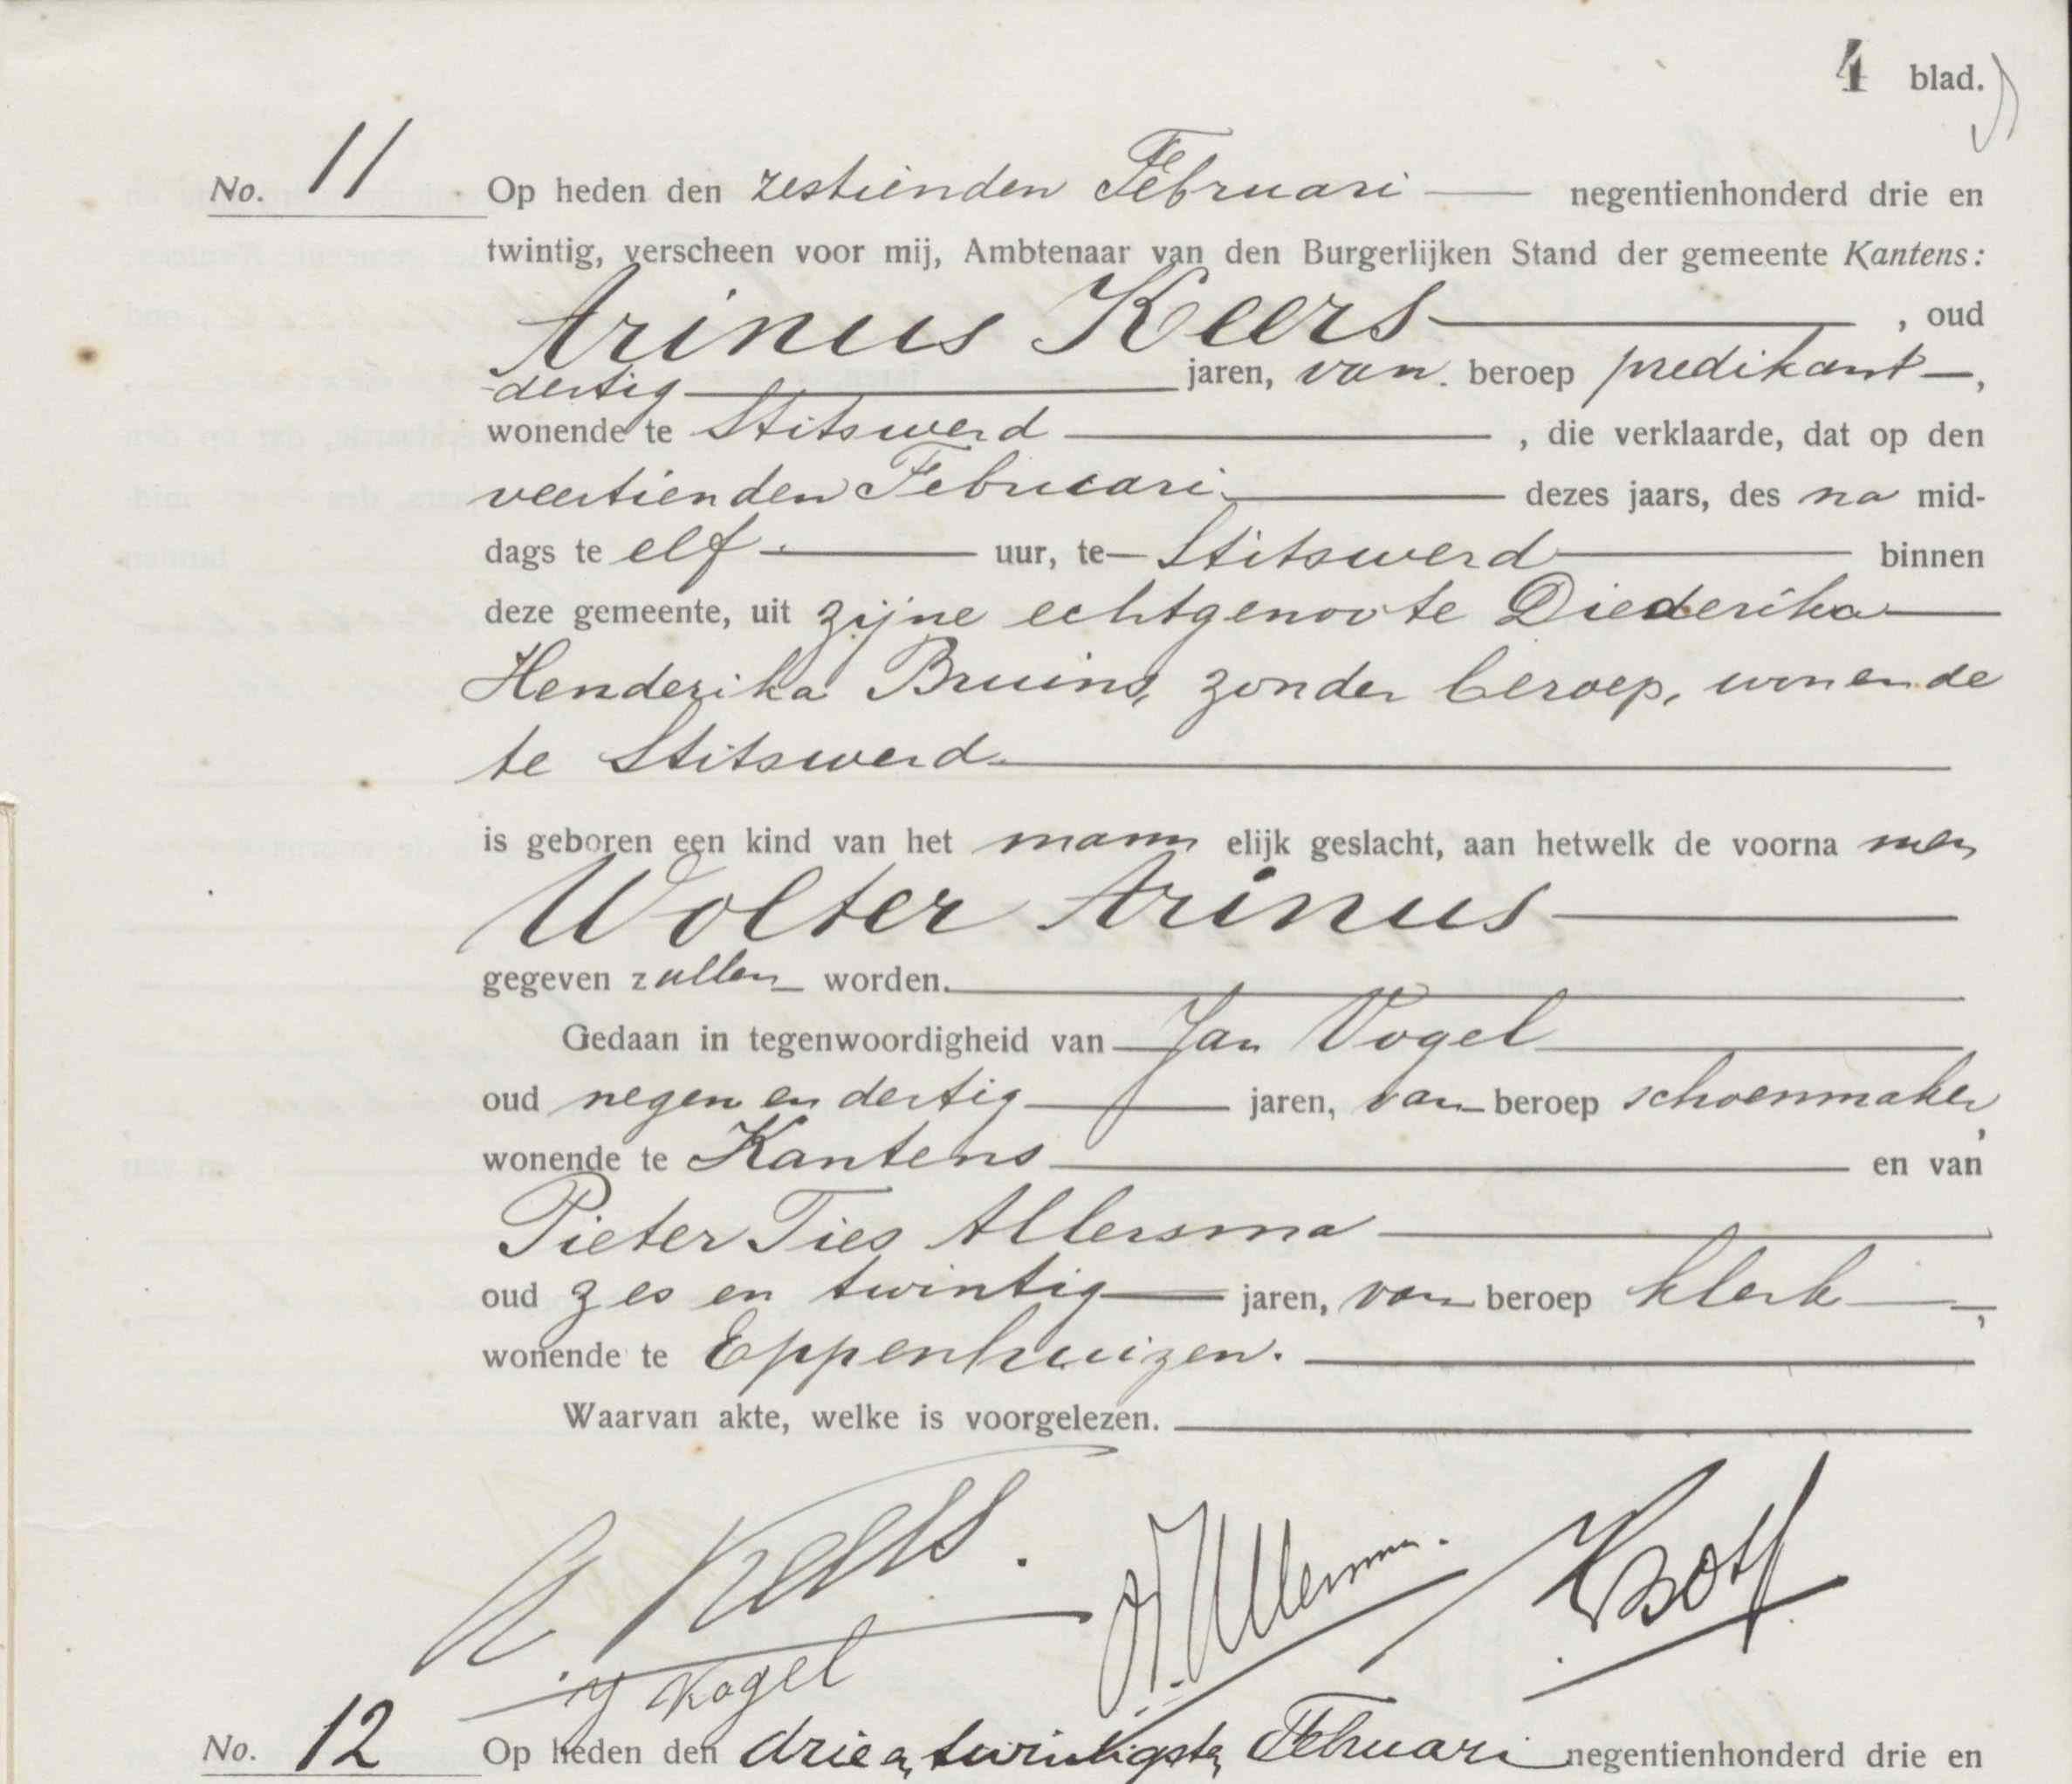 4 blad.
No. 11 Op heden den zestienden Februari negentienhonderd drie en
twintig, verscheen voor mij, Ambtenaar van den Burgerlijken Stand der gemeente Kantens:
Arinus Keers, oud
dertig jaren, van beroep predikant,
wonende te Stitswerd, die verklaarde, dat op den
veertienden Februari dezes jaars, des na mid-
dags te elf uur, te Stitswerd binnen
deze gemeente, uit zijne echtgenoote Diederika
Henderika Bruins, zonder beroep, wonende
te Stitswerd
is geboren een kind van het mann elijk geslacht, aan hetwelk de voorna men
Wolter Arinus
gegeven zullen worden.
Gedaan in tegenwoordigheid van Jan Vogel
oud negen en dertig jaren, van beroep schoenmaker,
wonende te Kantens en van
Pieter Ties Allersma
oud zes en twintig jaren, van beroep klerk,
wonende te Eppenhuizen.
Waarvan akte, welke is voorgelezen.
A Keers.
J Vogel
No. 12 Op heden den drie en twintigsten Februari negentienhonderd drie en